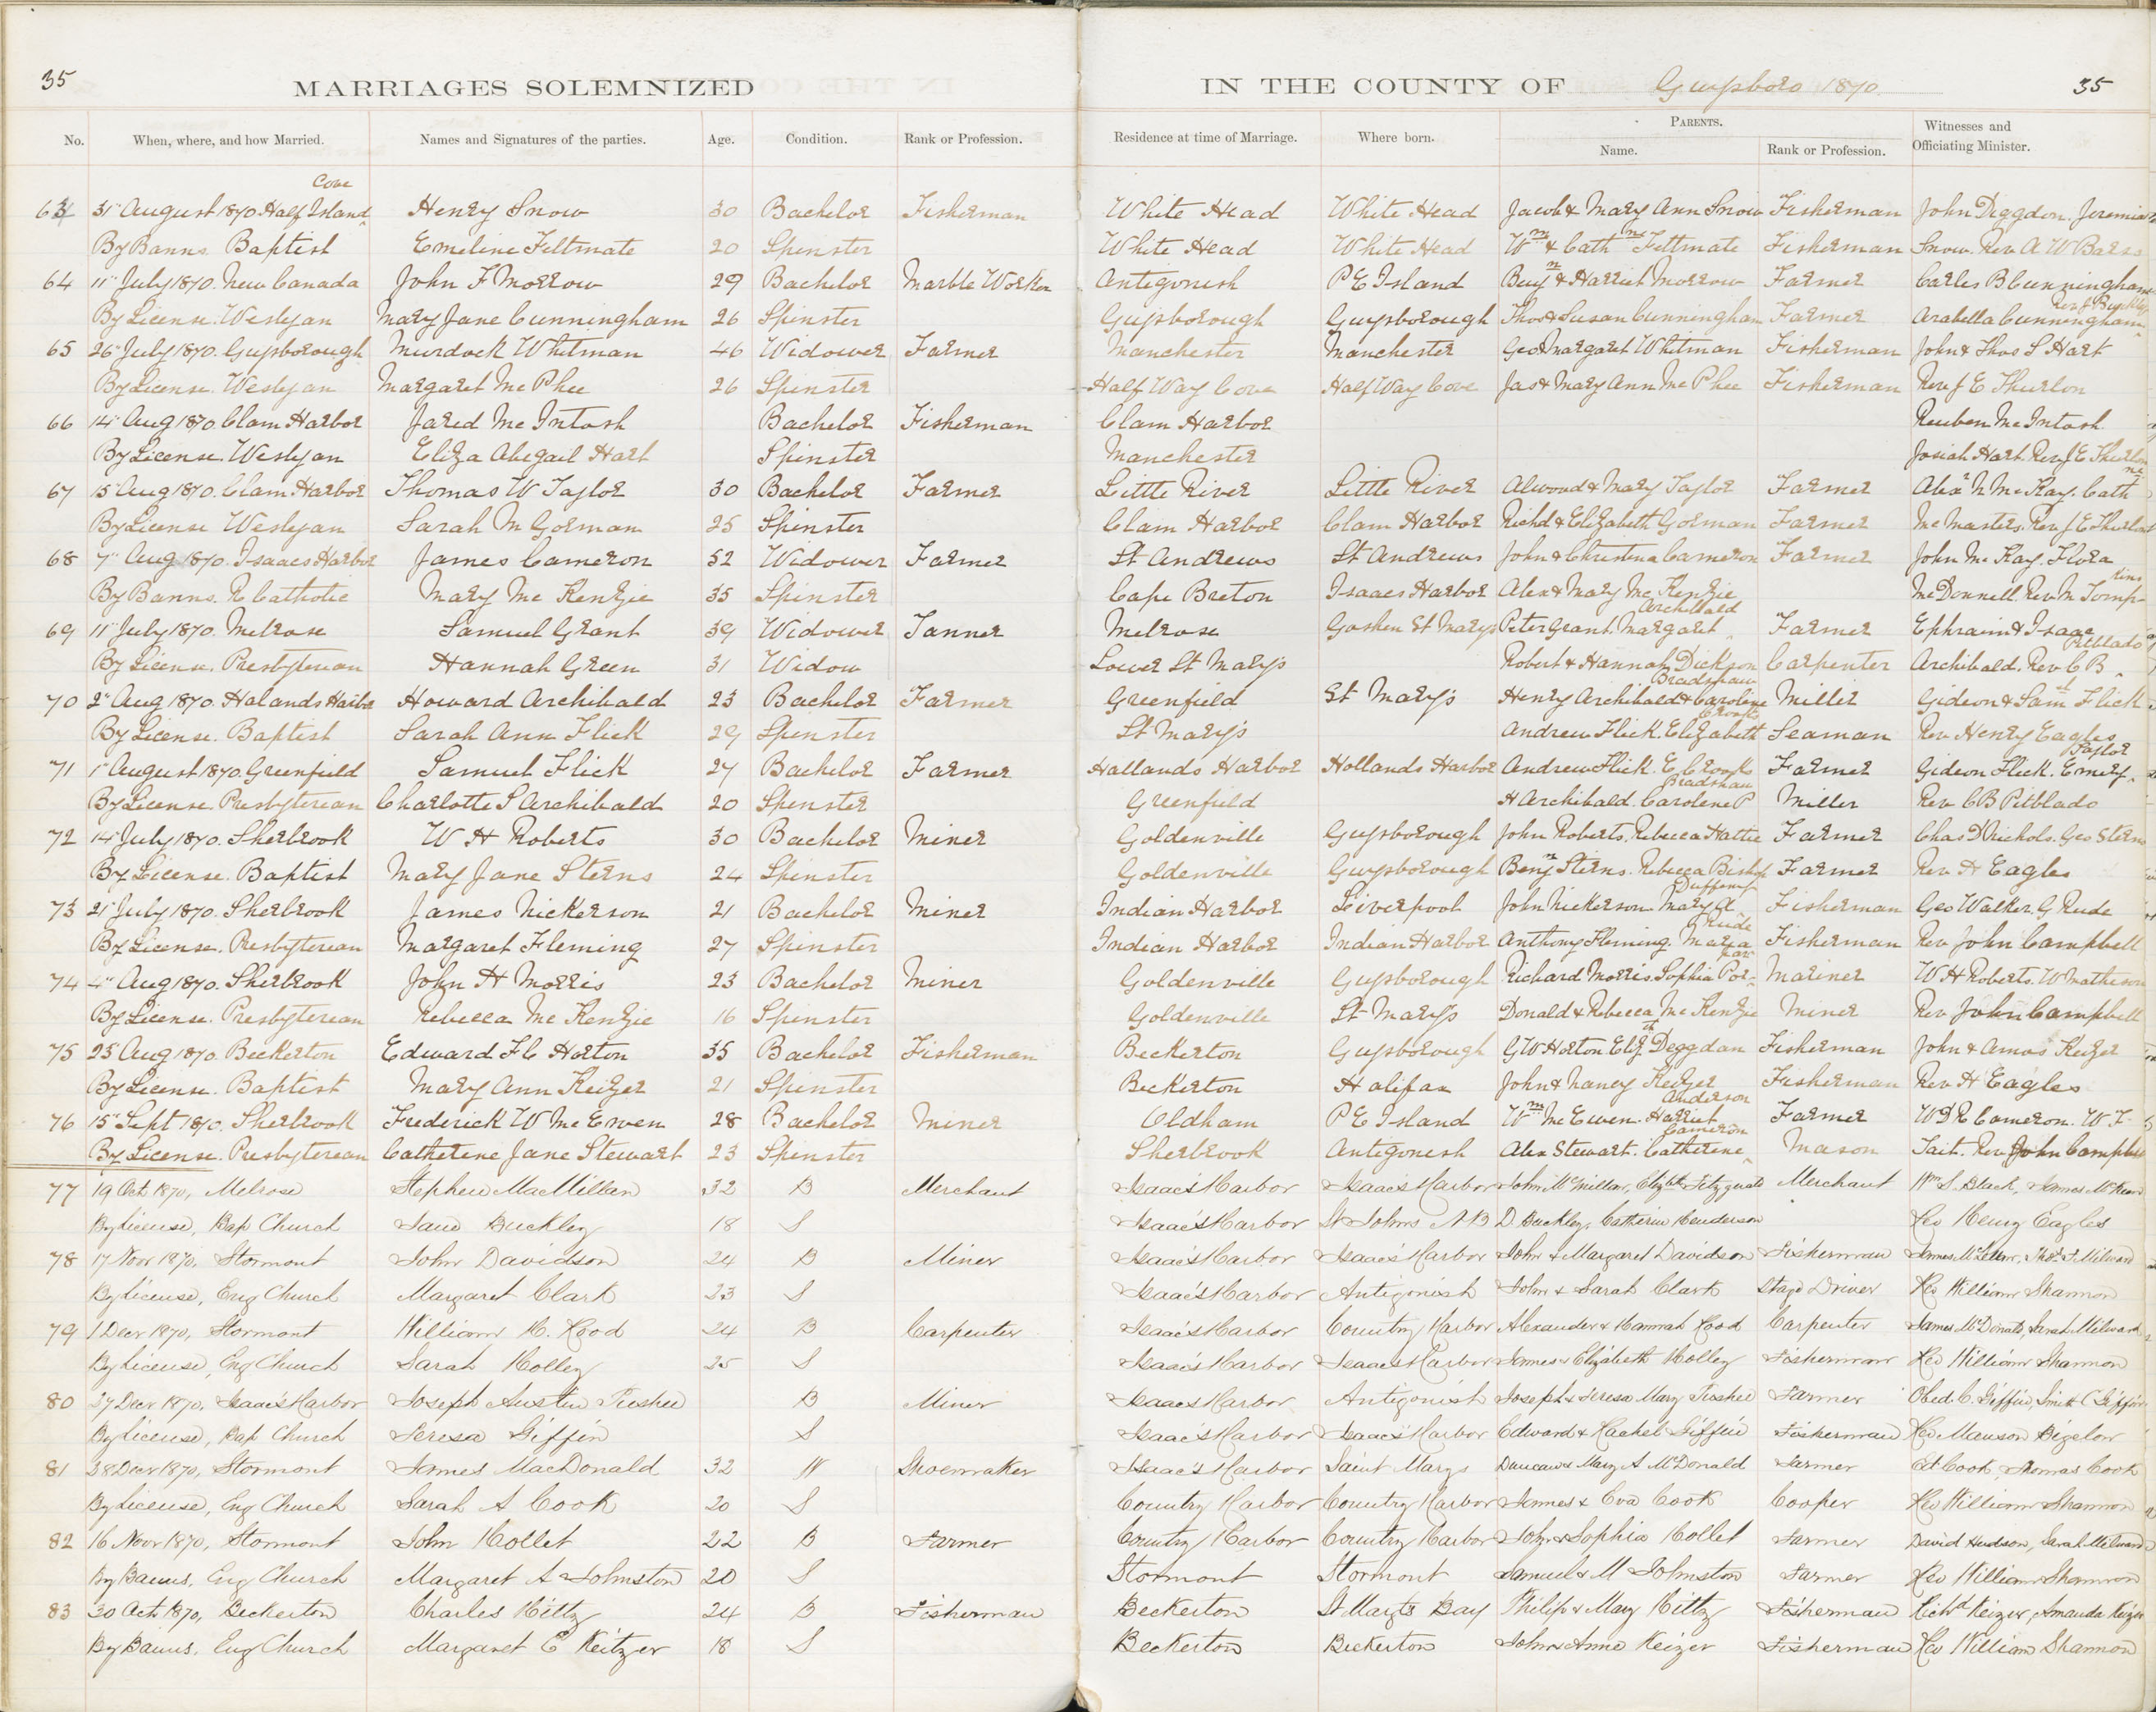 35
MARRIAGES SOLEMNIZED IN THE COUNTY OF Guysboro 1870. 35
No. When, where, and how Married. Names and Signatures of the parties. Age. Condition. Rank or Profession. Residence at time of Marriage. Where born. PARENTS. Name. Rank or Profession. Witnesses and Officiating Minister.
Cove
63 31" August 1870 Half Island Henry Snow 30 Bachelor Fisherman White Head White Head Jacob & Mary Ann Snow Fisherman John Diggdon. Jeremia
By Banns. Baptist Emeline Feltmate 20 Spinster White Head White Head Wm & Cathne Feltmate Fisherman Snow. Rev A W Barss
64 11" July 1870. New Canada John F Morrow 29 Bachelor Marble Worker Antigonish P E Island Benjn & Harriet Morrow Farmer Carles B Cunningham
By License. Weslyan Mary Jane Cunningham 26 Spinster Guysborough Guysborough Thos & Susan Cunningham Farmer Arabella Cunningham
65 26" July 1870. Guysborough Murdock Whitman 46 Widower Farmer Manchester Manchester Geo Margaret Whitman Fisherman John & Thos S Hart
By License. Weslyan Margaret Mc Phee 26 Spinster Half Way Cove Half Way Cove Jas & Mary Ann Mc Phee Fisherman Rev J E Thurlon
66 14" Aug 1870. Clam Harbor Jared Mc Intosh Bachelor Fisherman Clam Harbor Reuben Mc Intosh
By License. Weslyan Eliza Abegail Hart Spinster Manchester Josiah Hart. Rev J E Thurlon
67 15" Aug 1870. Clam Harbor Thomas W Taylor 30 Bachelor Farmer Little River Little River Alwood & Mary Taylor Farmer Alexr N Mc Kay. Cathne
By License Weslyan Sarah M Gorman 25 Spinster Clam Harbor Clam Harbor Richd & Elizabeth Gorman Farmer Mc Masters. Rev J E Thurlon
68 7" Aug 1870. Isaacs Harbor James Cameron 52 Widower Farmer St Andrews St Andrews John & Christina Cameron Farmer John Mc Kay. Flora
By Banns. R Catholic Mary Mc Kenzie 35 Spinster Cape Breton Isaacs Harbor Alex & Mary Mc Kenzie Mc Donnell. Rev M Tompkins
69 11" July 1870. Melrose Samuel Grant 39 Widower Tanner Melrose Goshen St Marys Peter Grant. Margaret Archibald Farmer Ephraim & Isaac
By License. Presbyterian Hannah Green 31 Widow Lower St Mary's Robert & Hannah Dickson Carpenter Archibald. Rev C B Pitblado
70 2" Aug 1870. Halands Harbor Howard Archibald 23 Bachelor Farmer Greenfield St Mary's Henry Archibald & Caroline Bradshaw Miller Gideon & Saml Flick
By License. Baptist Sarah Ann Flick 29 Spinster St Mary's Andrew Flick. Elizabeth Crooks Seaman Rev Henry Eagles
71 1" August 1870. Greenfield Samuel Flick 27 Bachelor Farmer Hallands Harbor Hollands Harbor Andrew Flick. E Crooks Farmer Gideon Flick. Emery Taylor
By License. Presbyterian Charlotte S Archibald 20 Spenster Greenfield H Archibald. Carolene P Bradshaw Miller Rev C B Pitblado
72 14" July 1870. Sherbrook W H Roberts 30 Bachelor Miner Goldenville Guysborough John Roberts. Rebecca Hattie Farmer Chas D Nichols. Geo Sterns
By License. Baptist Mary Jane Sterns 24 Spinster Goldenville Guysborough Benjn Sterns. Rebecca Bishop Farmer Rev H Eagles
73 21" July 1870. Sherbrook James Nickerson 21 Bachelor Miner Indian Harbor Liverpool John Nickerson Mary A Fisherman Geo Walker. G Rude
By License. Presbyterian Margaret Fleming 27 Spinster Indian Harbor Indian Harbor Anthony Fleming. Maria Rude Fisherman Rev John Campbell
74 4" Aug 1870. Sherbrook John H Morris 23 Bachelor Miner Goldenville Guysborough Richard Morris. Sophia Por Mariner W H Roberts. W Matheson
By License. Presbyterian Rebecca Mc Kenzie 16 Spinster Goldenville St Marys Donald & Rebecca Mc Kenzie Miner Rev John Campbell
75 25" Aug 1870. Beckerton Edward F C Horton 35 Bachelor Fisherman Beckerton Guysborough G W Horton Elizth Deggdan Fisherman John & Amos Keizer
By License. Baptist Mary Ann Keizer 21 Spinster Beckerton Halifax John & Nancy Keizer Fisherman Rev H Eagles
76 15" Sept 1870. Sherbrook Frederick W Mc Ewen 28 Bachelor Miner Oldham P E Island Wm Mc Ewen. Harriet Anderson Farmer W D R Cameron. W F
By License. Presbyterian Catherine Jane Stewart 23 Spinster Sherbrook Antigonesh Alex Stewart. Catherine Cameron Mason Tait. Rev John Campbell
77 19 Oct 1870, Melrose Stephen MacMillan 32 B Merchant Isaac's Harbor Isaac's Harbor John McMillan, Elizbth Fitzgerald Merchant Wm S. Black, James McKeen
By License, Bap Church Jane Buckley 18 S Isaac's Harbor St Johns N B D. Buckley, Catherine Henderson Rev Henry Eagles
78 17 Novr 1870, Stormont John Davidson 24 B Miner Isaac's Harbor Isaac's Harbor John & Margaret Davidson Fisherman Thos. F. Milward
By License, Eng Church Margaret Clark 23 S Isaac's Harbor Antigonish John & Sarah Clark Stage Driver Rev William Shannon
79 1 Decr 1870, Stormont William H. Hood 24 B Carpenter Isaac's Harbor Country Harbor Alexander & Hannah Hood Carpenter James McDonald, Sarah Milward
By License, Eng Church Sarah Holley 25 S Isaac's Harbor Isaac's Harbor James & Elizabeth Holley Fisherman Rev William Shannon
80 27 Decr 1870, Isaac's Harbor Joseph Austin B Miner Isaac's Harbor Antigonish Joseph & Teresa Mary Farmer Obed C. Giffin, Simth C Giffin
By License, Bap Church Teresa Giffin S Isaac's Harbor Isaac's Harbor Edward & Rachel Giffin Fisherman Rev Manson Bigelow
81 28 Decr 1870, Stormont James MacDonald 32 W Shoemaker Isaac's Harbor Saint Marys Duncan & Mary A McDonald Farmer Ed Cook, Thomas Cook
By License, Eng Church Sarah A Cook 20 S Country Harbor Country Harbor James & Eva Cook Cooper Rev William Shannon
82 16 Novr 1870, Stormont John Hollet 22 B Farmer Country Harbor Country Harbor John & Sophia Hollet Farmer David Hudson, Sarah Milward
By Banns, Eng Church Margaret A Johnston 20 S Stormont Stormont Samuel & M Johnston Farmer Rev William Shannon
83 30 Oct 1870, Beckerton Charles Hiltz 24 B Fisherman Beckerton St Margts Bay Philip & Mary Hiltz Fisherman Richd Keizer, Amanda Keizer
By Banns, Eng Church Margaret E Keitzer 18 S Beckerton Beckerton John & Anne Keizer Fisherman Rev William Shannon